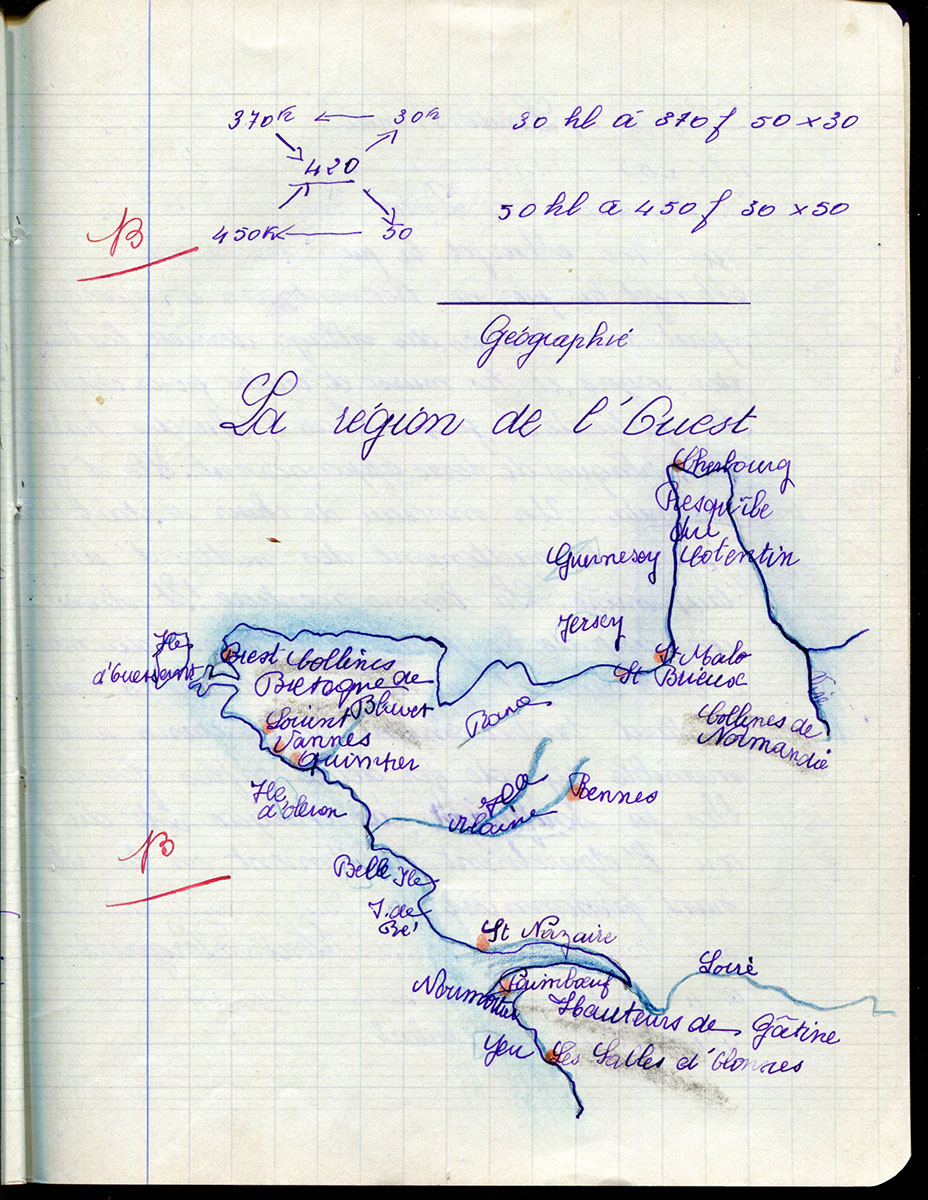 370 ← 30
420
450 ← 50
30 hl à 370 f 50 × 30
50 hl à 450 f 30 × 50
B
Géographie
La région de l'Ouest
Cherbourg
Presqu'île
du
Cotentin
Guernesey
Jersey
Ile
d'Ouessant
Brest
Collines
Bretagne de
Blavet
St Malo
St Brieux
Rance
Collines de
Normandie
Vannes
Quimper
Ile
d'oleron
Ille
Vilaine
Rennes
B
Belle Ile
I. de
Ré
St Nazaire
Loire
Paimboeuf
Hauteurs de Gâtine
Yeu
Les Sables d'Olonnes